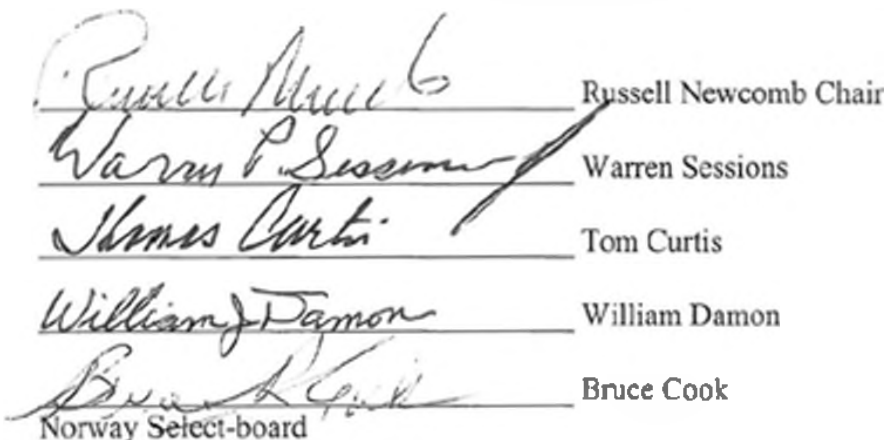 Russell Newcomb Russell Newcomb Chair
Warren P. Sessions Warren Sessions
Thomas Curtis Tom Curtis
William J Damon William Damon
Bruce A Cook Bruce Cook
Norway Select-board